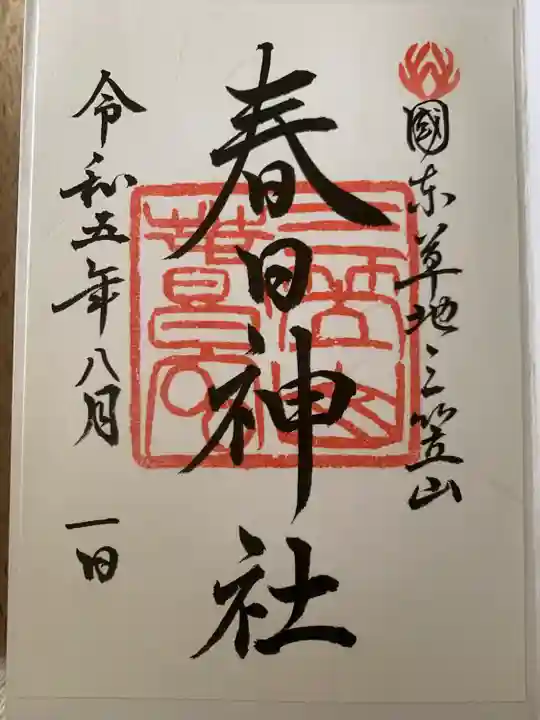 國东草地三笠山
春日神社
令和五年八月 一日